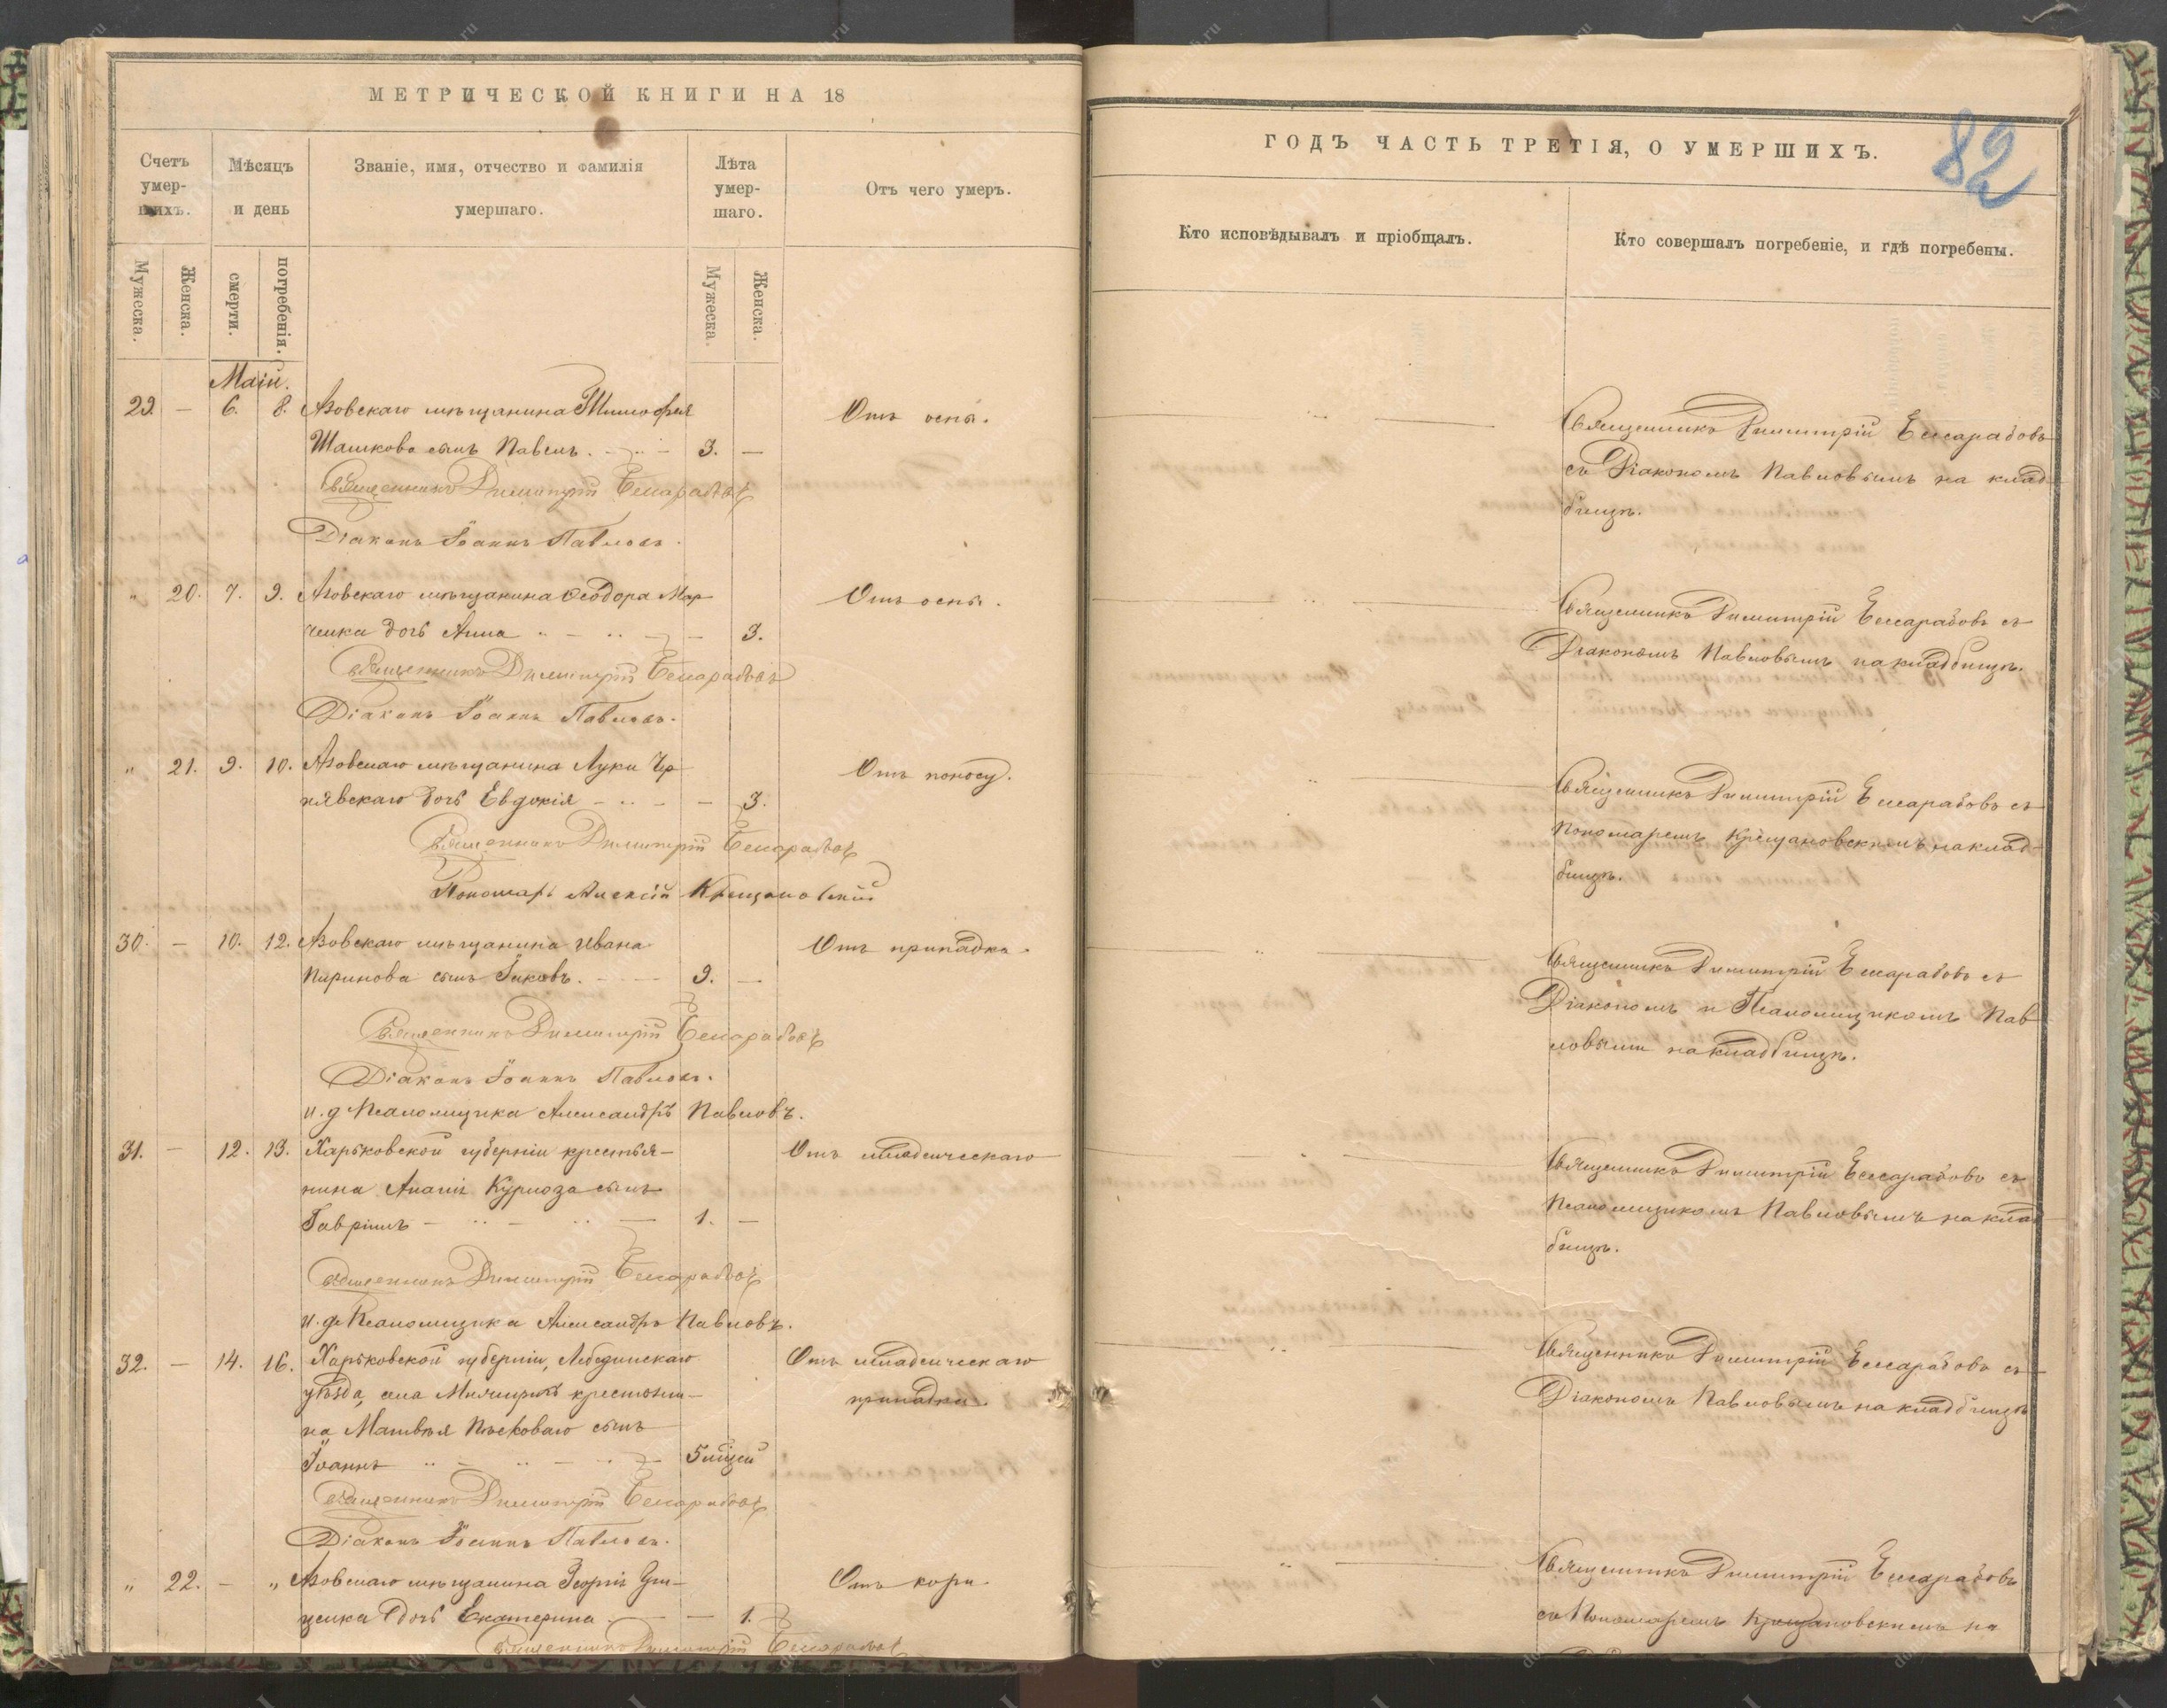 МЕТРИЧЕСКОЙ КНИГИ НА 18
Счетъ умершихъ.
Мѣсяцъ и день
Званіе, имя, отчество и фамилія умершаго.
Лѣта умершаго.
Отъ чего умеръ.
Мужеска.
Женска.
смерти.
погребенія.
Мужеска.
Женска.
Маій.
29. — 6. 8. Азовскаго мѣщанина Тимофея Отъ оспы.
Шашкова сынъ Павелъ. 3. —
Священникъ Димитрій Бессарабовъ
Діаконъ Іоаннъ Павловъ.
" 20. 7. 9. Азовскаго мѣщанина Ѳеодора Мар Отъ оспы.
ченка дочь Анна — 3.
Священникъ Димитрій Бессарабовъ
Діаконъ Іоаннъ Павловъ.
" 21. 9. 10. Азовскаго мѣщанина Луки Чер Отъ поносу.
нявскаго дочь Евдокія — 3.
Священникъ Димитрій Бессарабовъ
Пономарь Алексій Крещановскій
30. — 10. 12. Азовскаго мѣщанина Ивана Отъ припадка.
сынъ Іаковъ. 9. —
Священникъ Димитрій Бессарабовъ
Діаконъ Іоаннъ Павловъ.
и. д. Псаломщика Александръ Павловъ.
31. — 12. 13. Харьковской губерніи крестья- Отъ младенческаго
нина сынъ
Гавріилъ 1. —
Священникъ Димитрій Бессарабовъ
и. д. Псаломщика Александръ Павловъ.
32. — 14. 16. Харьковской губерніи, Лебединскаго Отъ младенческаго
уѣзда, села крестьяни- припадка.
на Матвѣя сынъ
Іоаннъ 5 мѣсяц
Священникъ Димитрій Бессарабовъ
Діаконъ Іоаннъ Павловъ.
" 22. — " Азовскаго мѣщанина Георгія Отъ кори.
ценка дочь Екатерина — 1.
Священникъ Димитрій Бессарабовъ
ГОДЪ ЧАСТЬ ТРЕТІЯ, О УМЕРШИХЪ.
82
Кто исповѣдывалъ и пріобщалъ.
Кто совершалъ погребеніе, и гдѣ погребены.
Священникъ Димитрій Бессарабовъ
съ Діакономъ Павловымъ на клад-
бищѣ.
Священникъ Димитрій Бессарабовъ съ
Діакономъ Павловымъ на кладбищѣ.
Священникъ Димитрій Бессарабовъ съ
Пономаремъ Крещановскимъ на клад-
бищѣ.
Священникъ Димитрій Бессарабовъ съ
Діакономъ и Псаломщикомъ Пав
ловыми на кладбищѣ.
Священникъ Димитрій Бессарабовъ съ
Псаломщикомъ Павловымъ на клад
бищѣ.
Священникъ Димитрій Бессарабовъ съ
Діакономъ Павловымъ на кладбищѣ
Священникъ Димитрій Бессарабовъ
съ Пономаремъ Крещановскимъ на